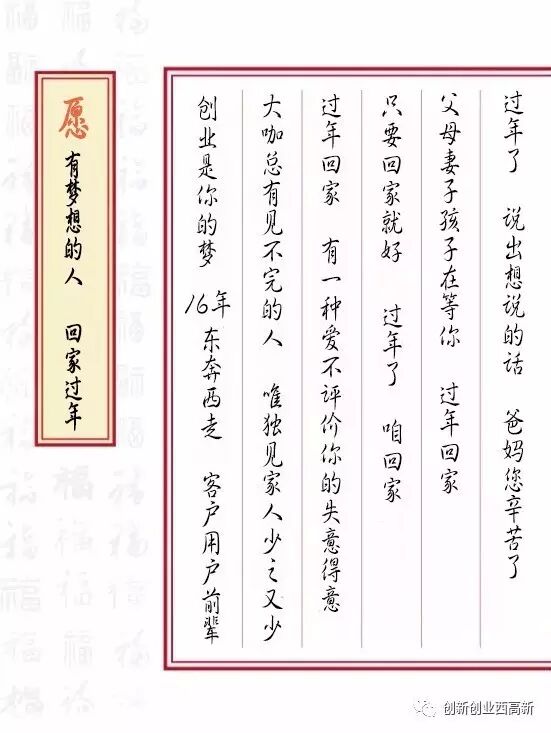 愿 有梦想的人 回家过年
创业是你的梦 16年东奔西走 客户用户前辈
大咖总有见不完的人 唯独见家人少之又少
过年回家 有一种爱不评价你的失意得意
只要回家就好 过年了 咱回家
父母妻子孩子在等你 过年回家
过年了 说出想说的话 爸妈您辛苦了
创新创业西高新